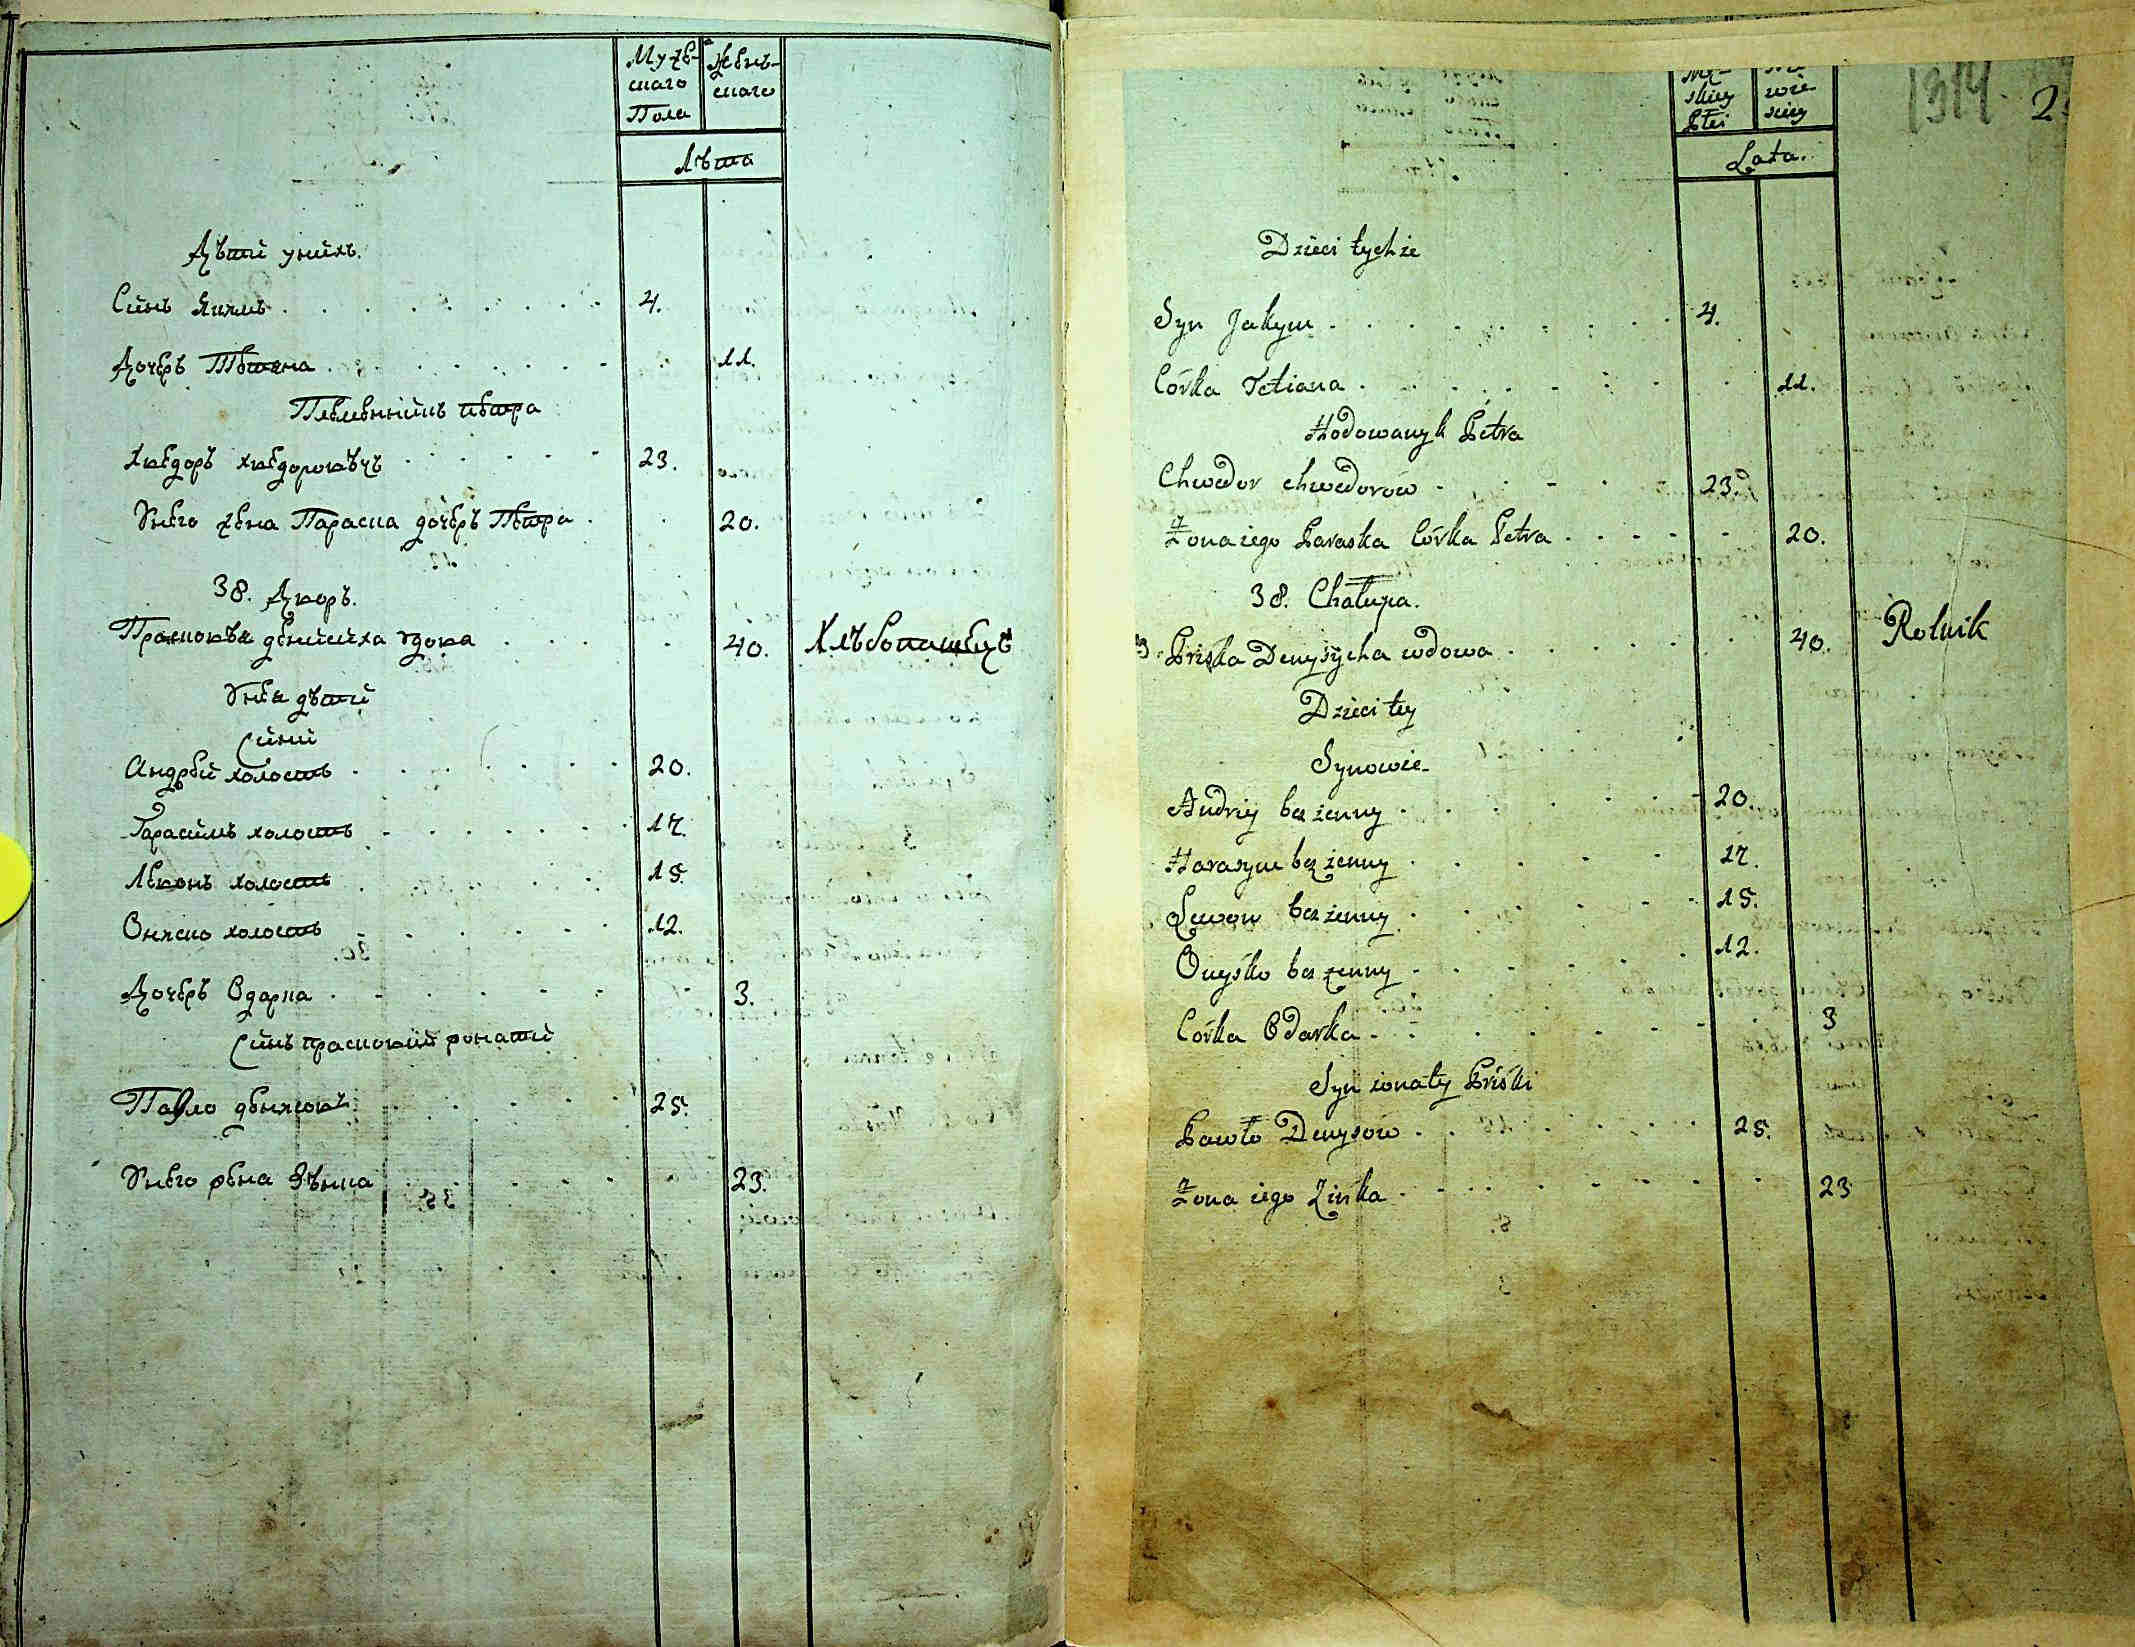 Мужеского Пола
Женъского
Лѣта
Дѣти унихъ.
Синъ Якимъ 4.
Дочеръ Тетяна 11.
Племѣнникъ петра
Хведоръ хведоровъ 23.
Унего жена Параска дочеръ Петра 20.
38. Дворъ.
денисиха вдова 40. Хлѣбопашецъ
Унея дѣти
Сини
Андрей холостъ 20.
Гарасимъ холостъ 17.
Левонъ холостъ 15.
Ониско холостъ 12.
Дочеръ Одарка 3.
Синъ женатий
Павло денисовъ 25.
Унего жена Зѣнка 23.
Męskiey Płci
Lata.
1314. 2
Dzieci tychże
Syn Jakym 4.
Córka Tetiana 11.
Hodowanyk Petra
Chwedor chwedorow 23
Żona iego Paraska Córka Petra 20.
38. Chałupa.
Priska Denysycha wdowa 40. Rolnik
Dzieci tey
Synowie
Andrij bezżenny 20.
Harasym bezżenny 17.
Lewon bezżenny 15.
Onyśko bezżenny 12.
Córka Odarka 3
Syn żonaty Priśki
Pawło Denysow 25.
Żona iego Zinka 23